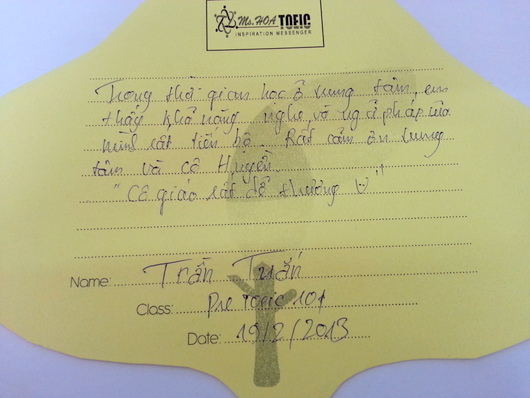 Ms. HOA TOEIC
INSPIRATION MESSENGER
Trong thời gian học ở trung tâm, em
thấy khả năng nghe và ngữ pháp của
mình rất tiến bộ. Rất cảm ơn trung
tâm và cô Huyền.
"Cô giáo rất dễ thương :)"
Name: Trần Tuấn
Class: Pre TOEIC 101
Date: 19/2/2013